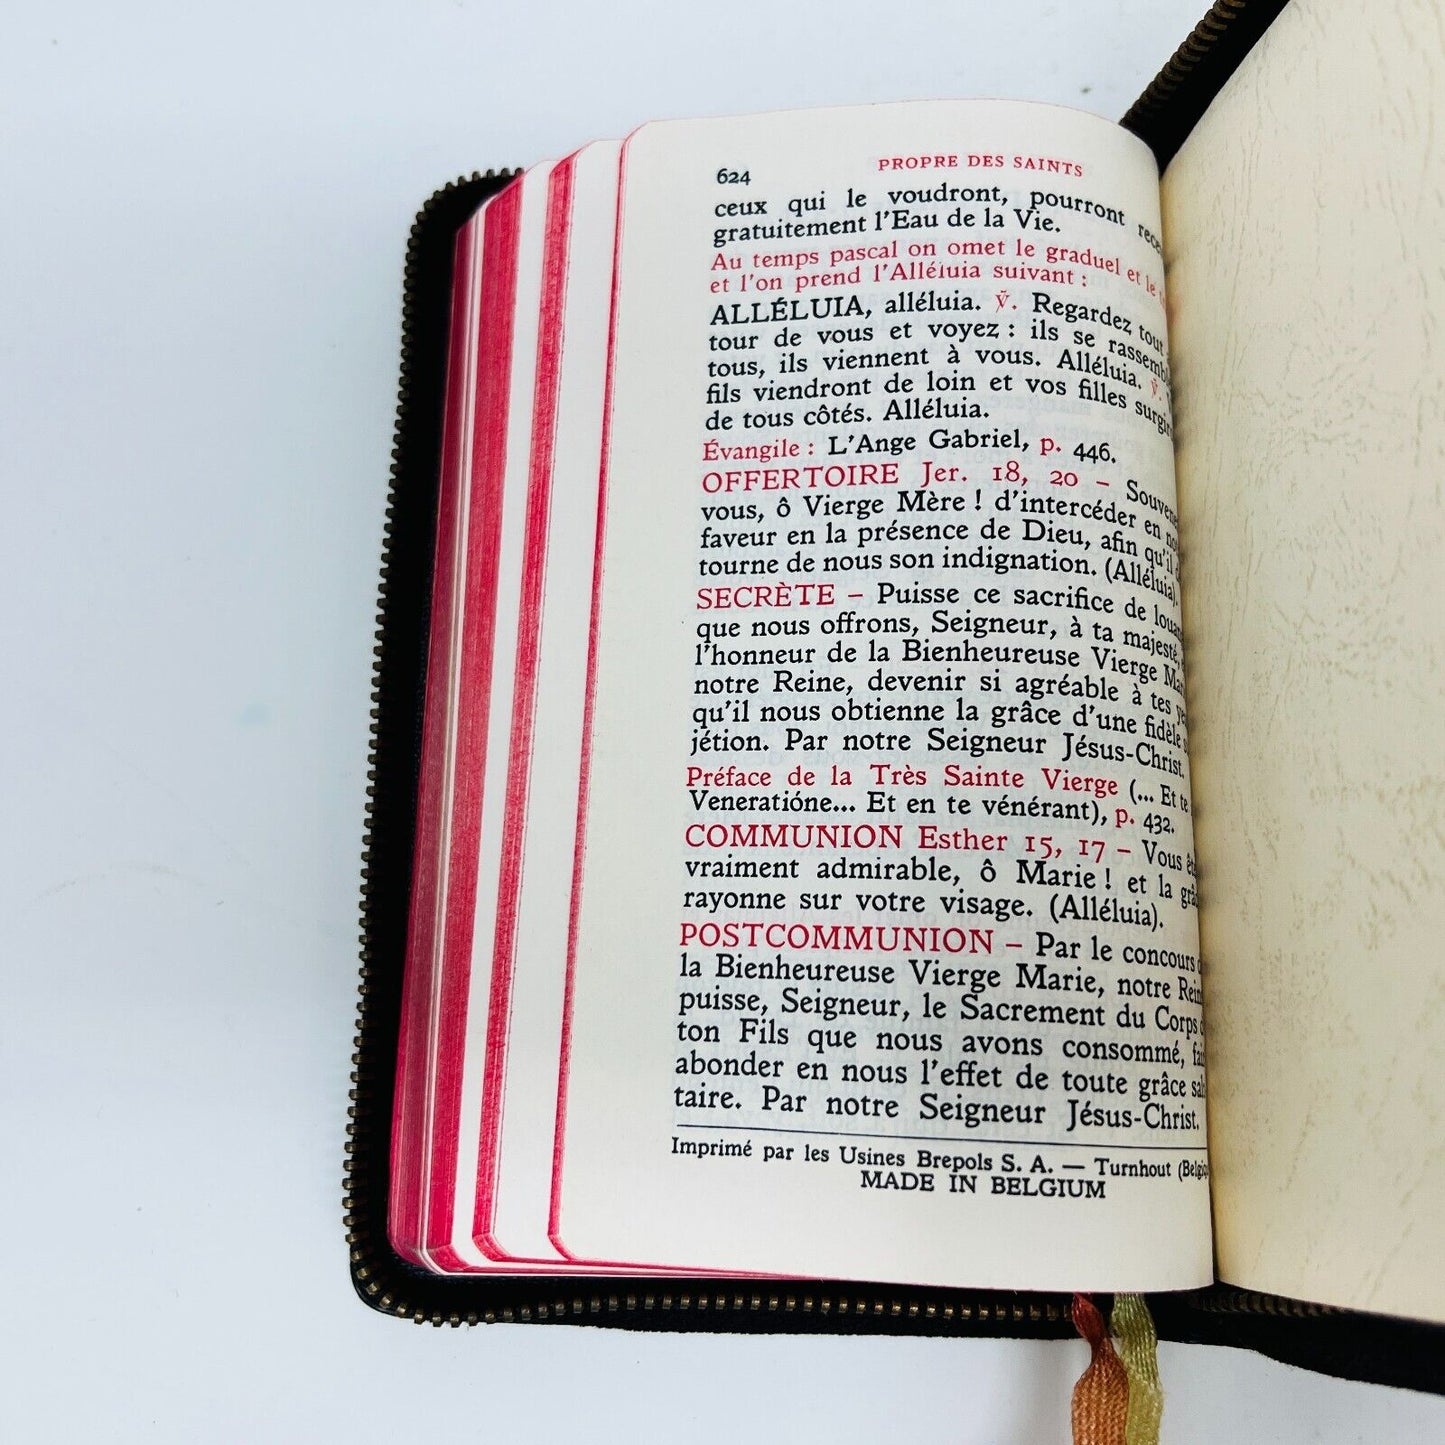 624 PROPRE DES SAINTS
ceux qui le voudront, pourront
gratuitement l'Eau de la Vie.
Au temps pascal on omet le graduel et le
et l'on prend l'Alléluia suivant :
ALLÉLUIA, alléluia. ℣. Regardez tout
tour de vous et voyez : ils se
tous, ils viennent à vous. Alléluia. ℣.
fils viendront de loin et vos filles
de tous côtés. Alléluia.
Évangile : L'Ange Gabriel, p. 446.
OFFERTOIRE Jer. 18, 20 –
vous, ô Vierge Mère ! d'intercéder en
faveur en la présence de Dieu, afin qu'il
tourne de nous son indignation. (Alléluia).
SECRÈTE – Puisse ce sacrifice de
que nous offrons, Seigneur, à ta majesté,
l'honneur de la Bienheureuse Vierge
notre Reine, devenir si agréable à tes
qu'il nous obtienne la grâce d'une fidèle
jétion. Par notre Seigneur Jésus-Christ.
Préface de la Très Sainte Vierge (... Et te
Veneratióne... Et en te vénérant), p. 432.
COMMUNION Esther 15, 17 – Vous
vraiment admirable, ô Marie ! et la
rayonne sur votre visage. (Alléluia).
POSTCOMMUNION – Par le concours
la Bienheureuse Vierge Marie, notre
puisse, Seigneur, le Sacrement du Corps
ton Fils que nous avons consommé,
abonder en nous l'effet de toute grâce
taire. Par notre Seigneur Jésus-Christ.
Imprimé par les Usines Brepols S. A. — Turnhout
MADE IN BELGIUM